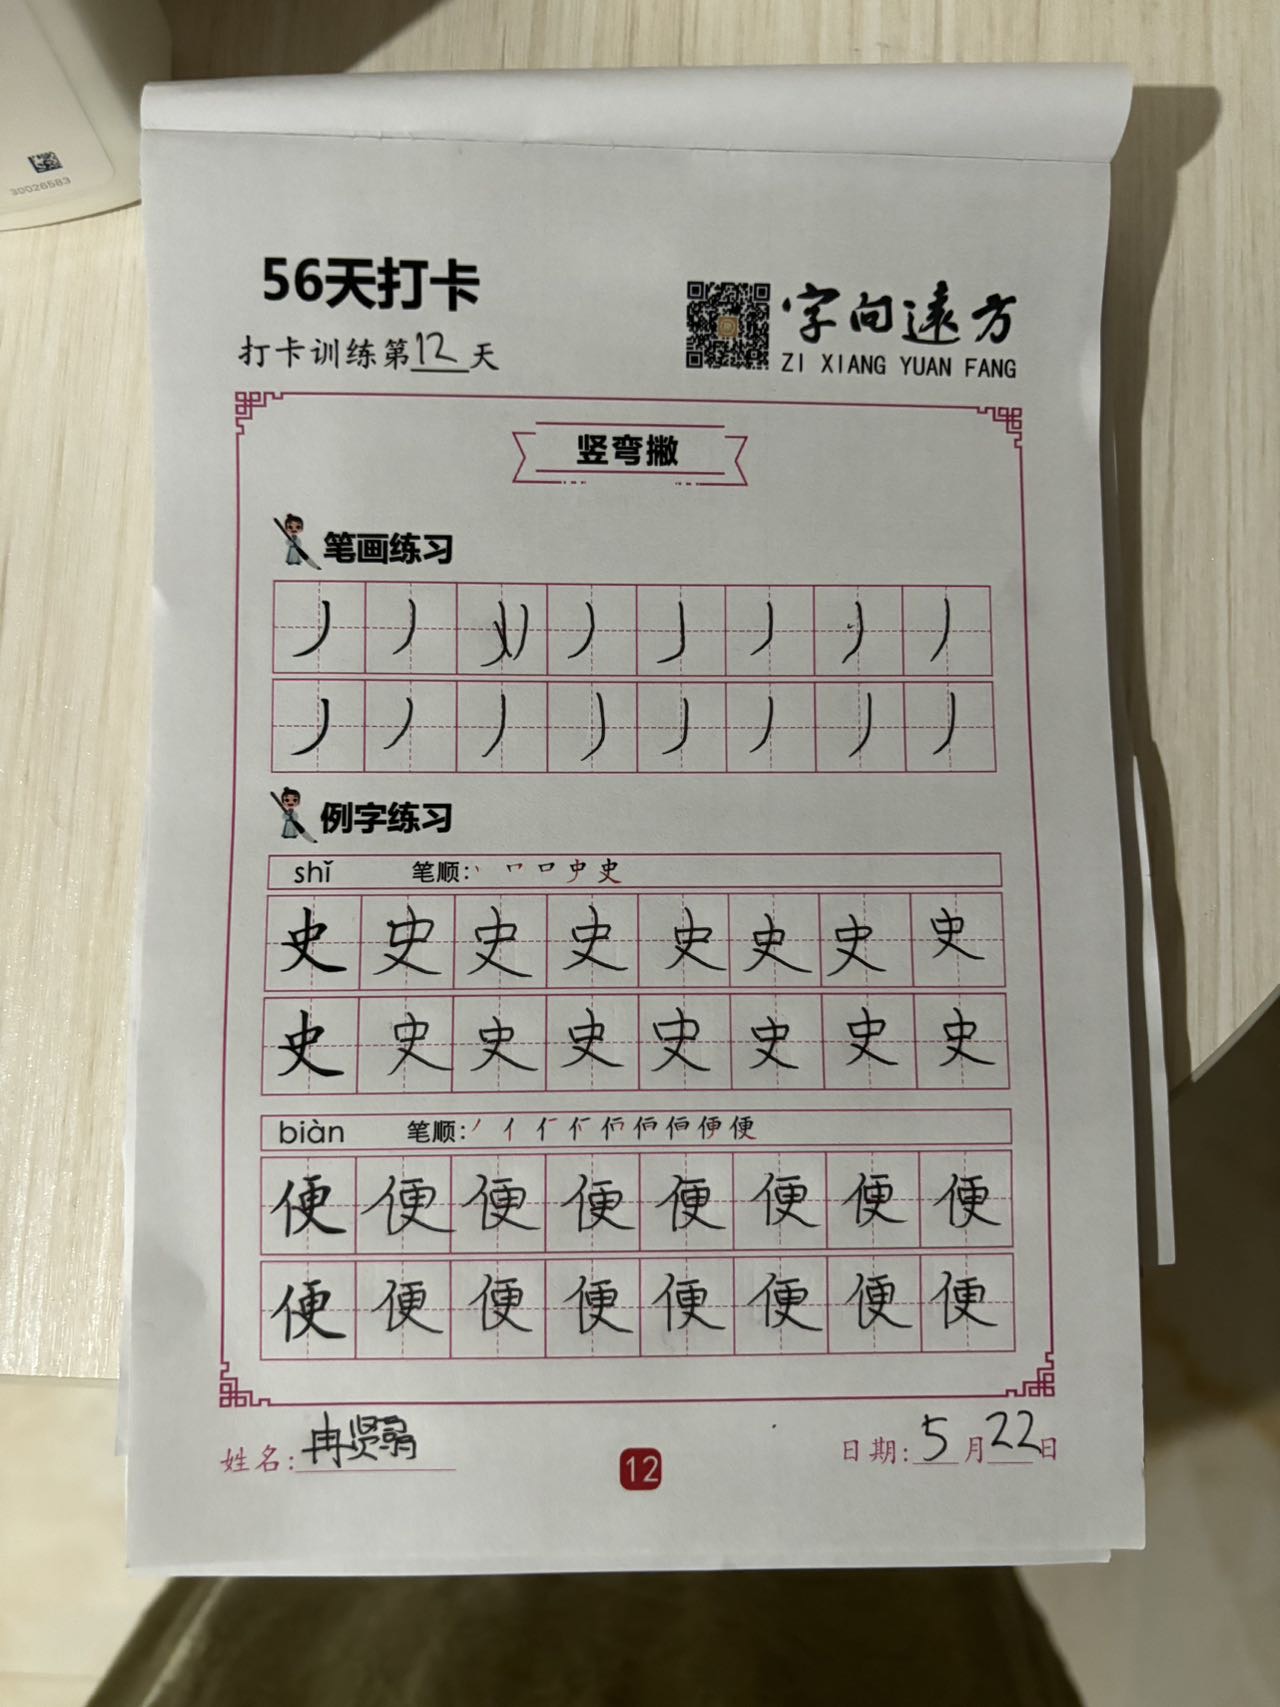 30026583
56天打卡
打卡训练第12天
字向遠方
ZI XIANG YUAN FANG
竖弯撇
笔画练习
丿丿丿丿丿丿丿丿
丿丿丿丿丿丿丿丿
例字练习
shǐ 笔顺:丶 口 史
史史史史史史史史
史史史史史史史史
biàn 笔顺:丿 亻 便
便便便便便便便便
便便便便便便便便
姓名:冉贤
12
日期:5月22日